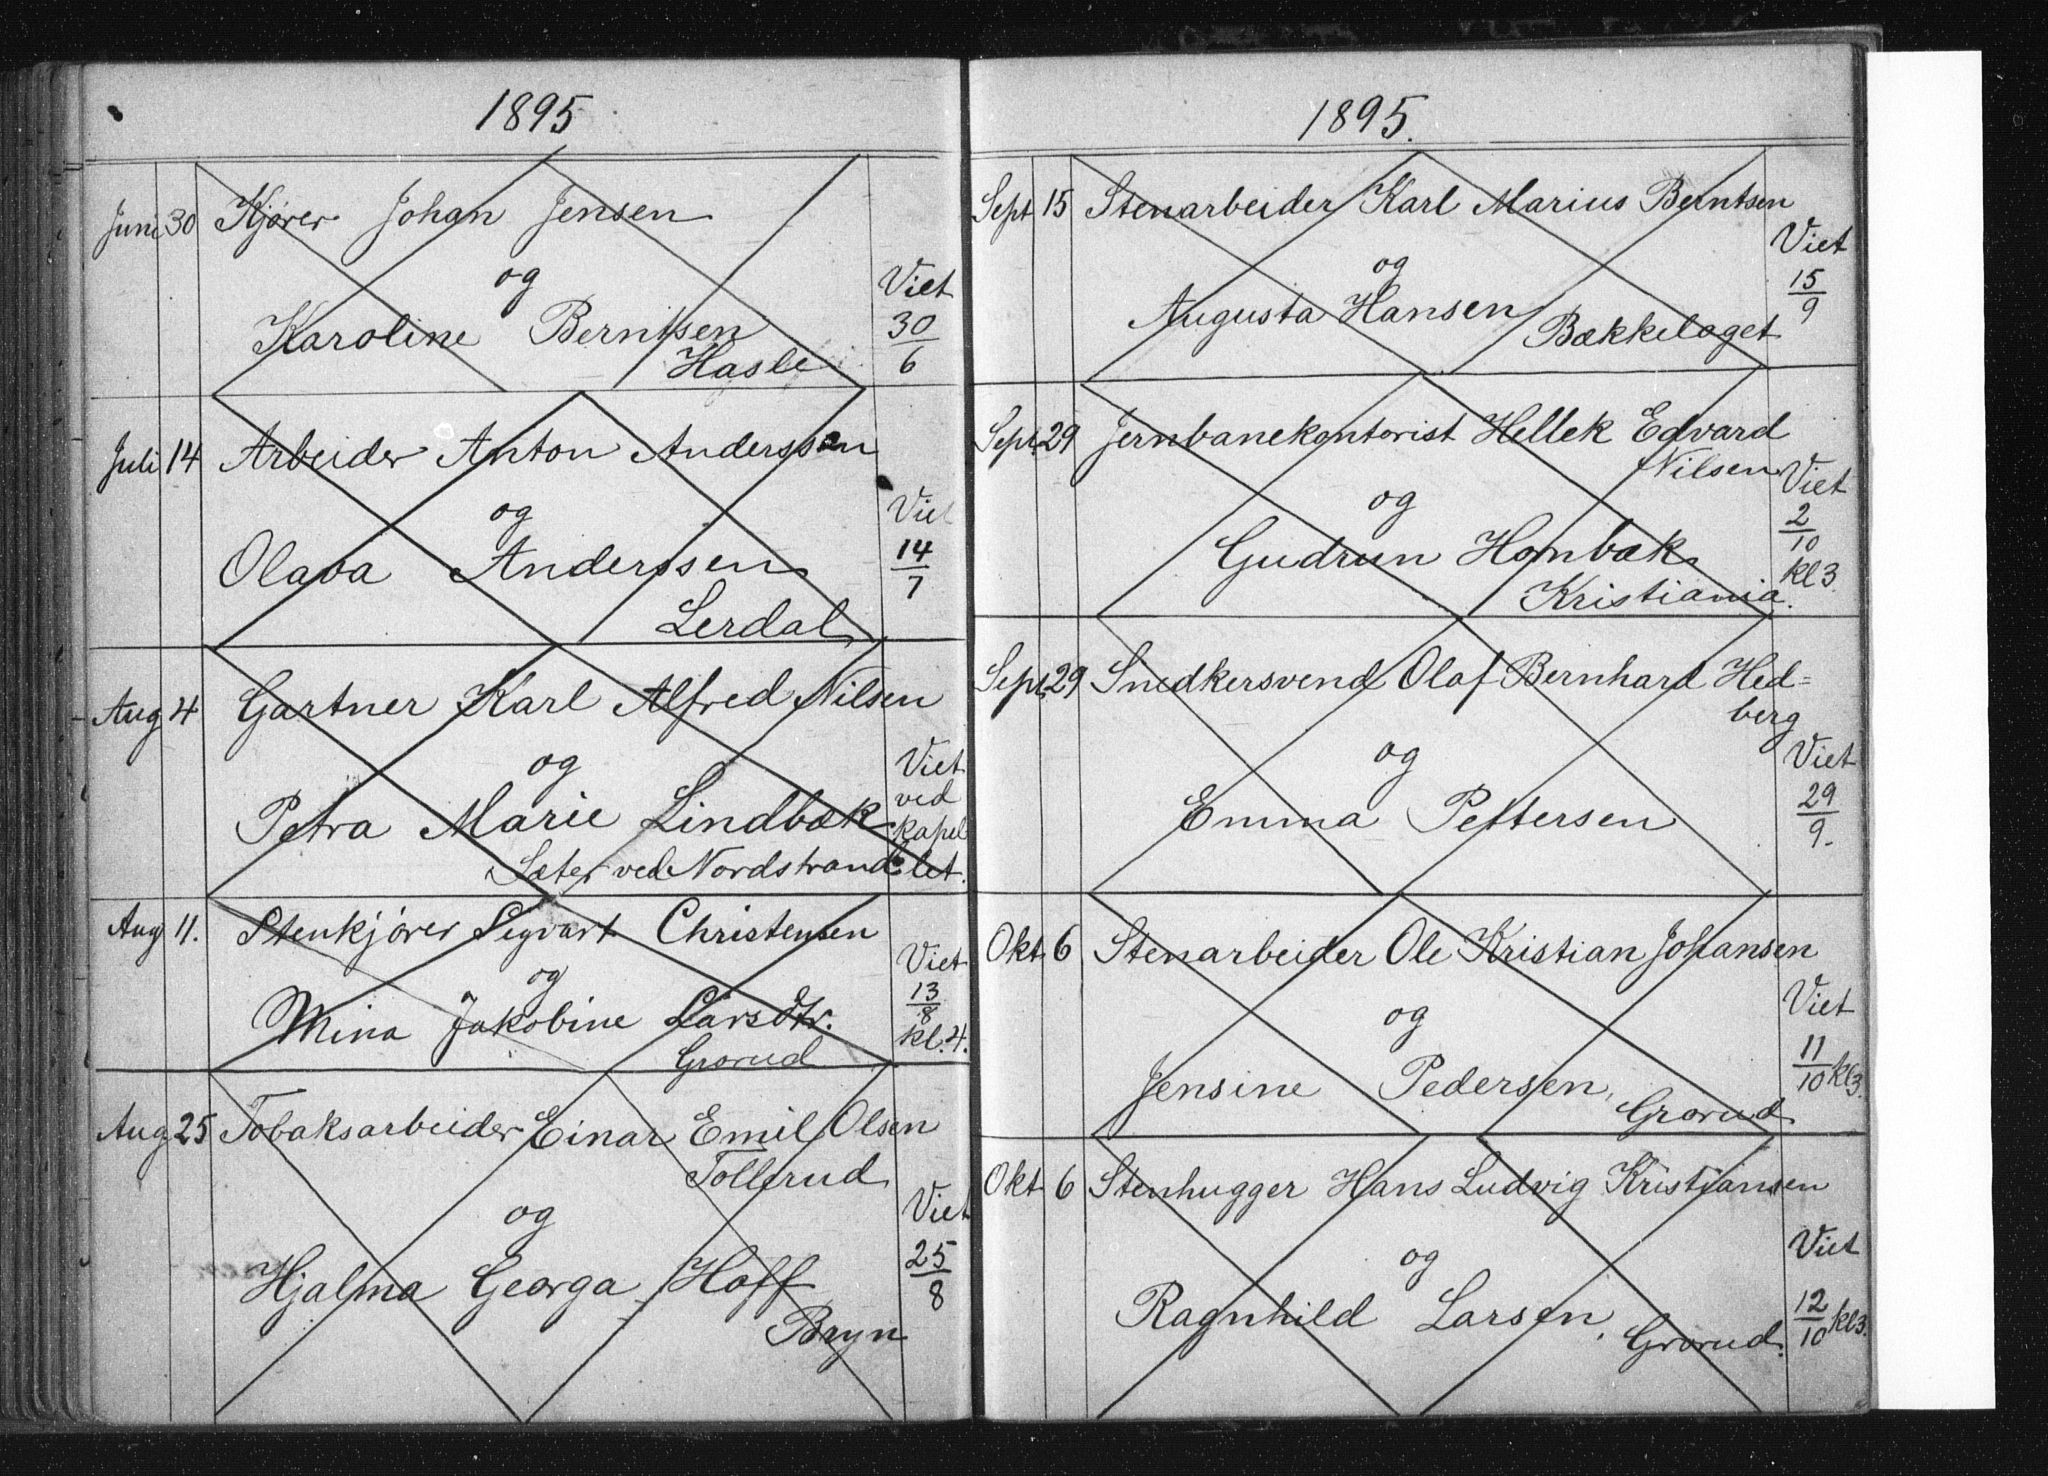 1895
Juni 30 Kjører Johan Jensen
og
Karoline Berntsen
Hasle
Viet
30/6
Juli 14 Arbeider Anton Anderssen
og
Olava Anderssen
Lerdal
Viet
14/7
Aug 4 Gartner Karl Alfred Nilsen
og
Petra Marie Lindbæk
Sæter ved Nordstrand
Viet
ved
kapel
let.
Aug 11. Stenkjører Sigvart Christensen
og
Mina Jakobine Larsdtr.
Grorud
Viet
13/8
kl. 4.
Aug 25 Tobaksarbeider Einar Emil Olsen
Tollerud
og
Hjalma Georga Hoff
Bryn
Viet
25/8
1895.
Sept 15 Stenarbeider Karl Marius Berntsen
og
Augusta Hansen
Bækkelaget
Viet
15/9
Sept. 29 Jernbanekontorist Hellek Edvard
Nilsen
og
Gudrun Hombæk
Kristiania.
Viet
2/10
kl 3.
Sept. 29 Snedkersvend Olaf Bernhard Hed=
berg
og
Emma Pettersen
Viet
29/9.
Okt 6 Stenarbeider Ole Kristian Johansen
og
Jensine Pedersen,
Grorud
Viet
11/10 kl 3.
Okt 6 Stenhugger Hans Ludvig Kristiansen
og
Ragnhild Larsen,
Grorud.
Viet
12/10 kl 3.